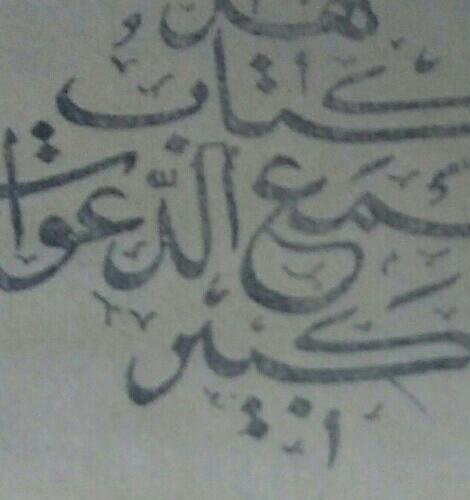 هذا
كتاب
الدَّعوات
كبير